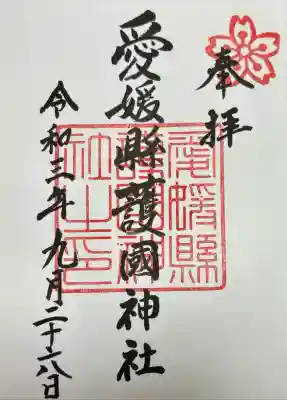 奉拝
愛媛縣護國神社
愛媛縣護國神社之印
令和三年九月二十六日